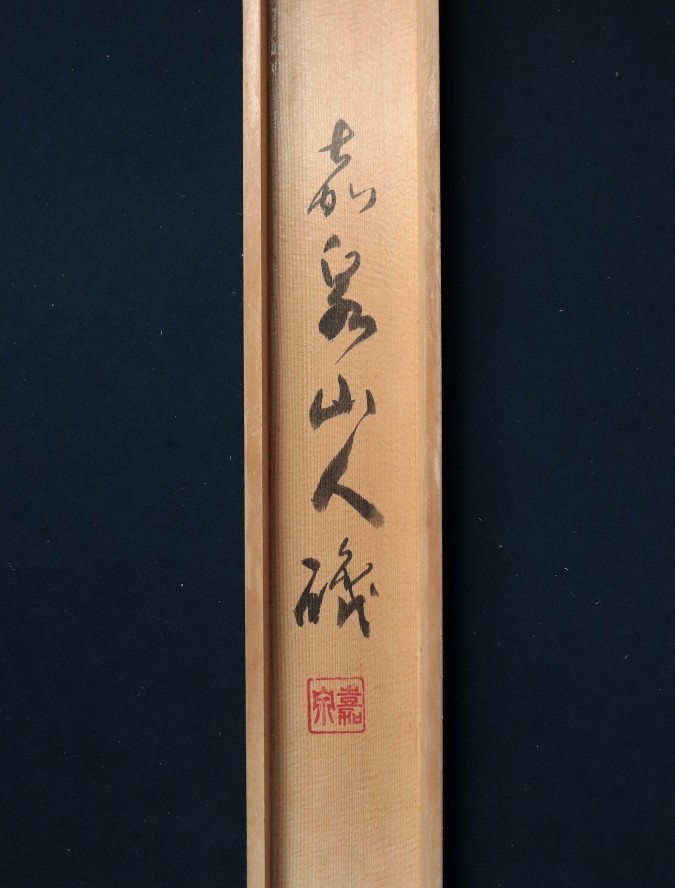 嘉泉山人磯
嘉泉